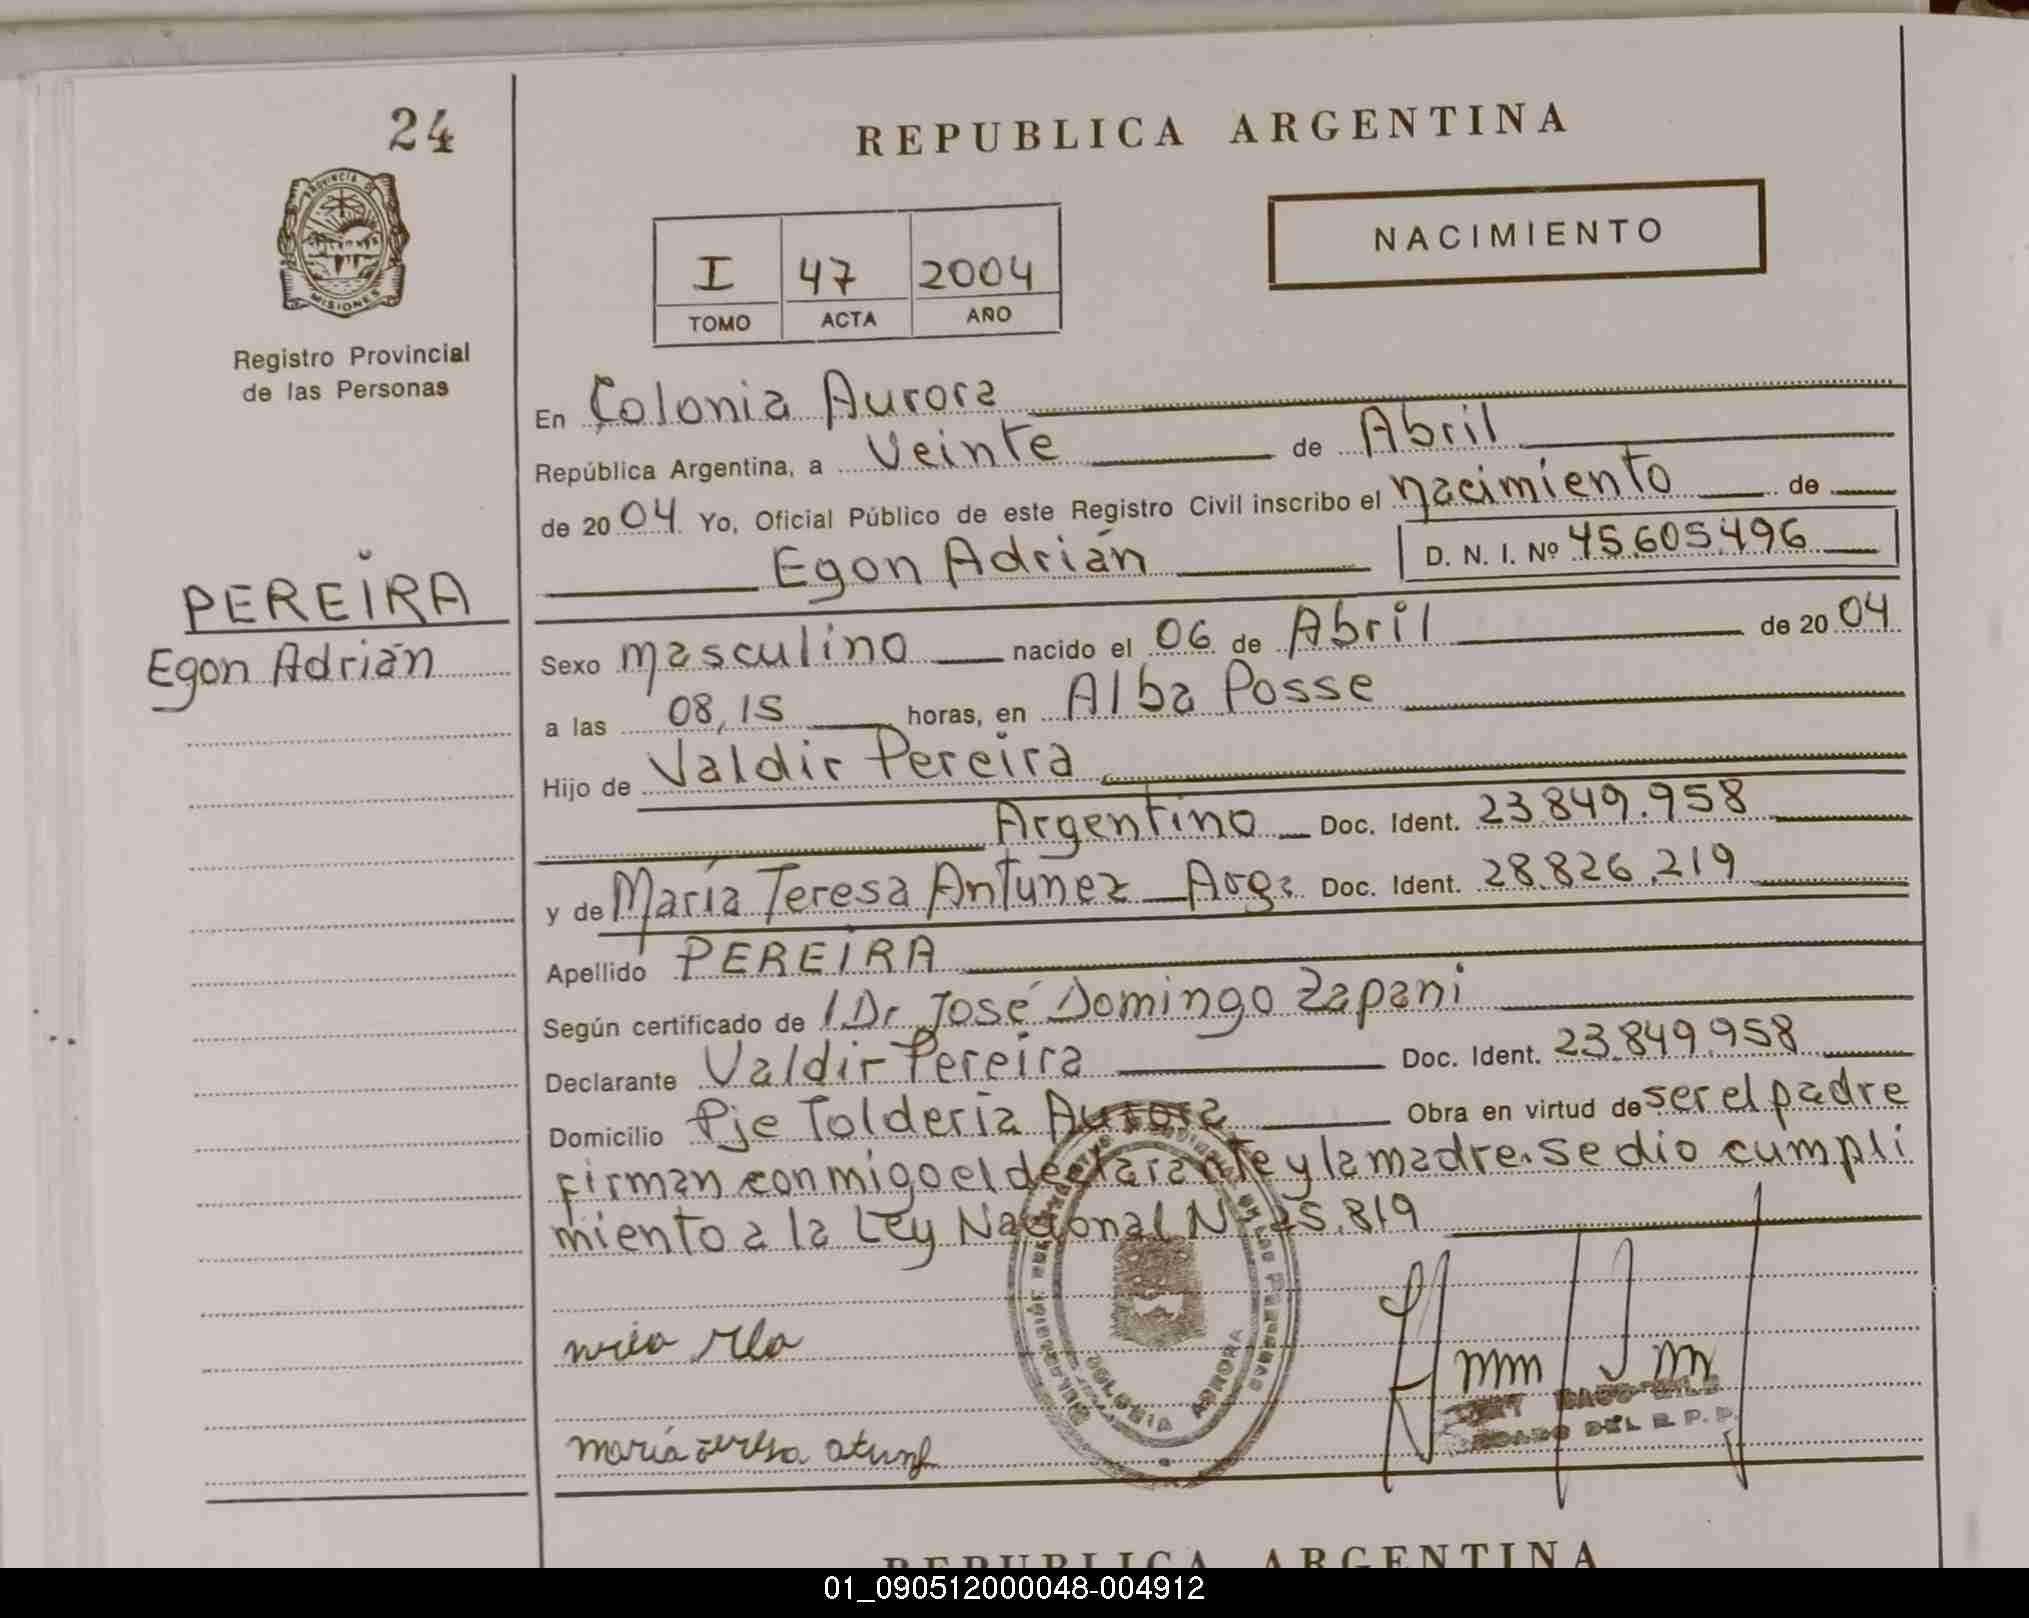 24
REPUBLICA ARGENTINA
PROVINCIA DE
MISIONES
NACIMIENTO
I 47 2004
TOMO ACTA AÑO
Registro Provincial
de las Personas
En Colonia Aurora
República Argentina, a Veinte de Abril
de 2004 Yo, Oficial Público de este Registro Civil inscribo el nacimiento de
Egon Adrián D. N. I. Nº 45.605.496
PEREIRA
Egon Adrián
Sexo masculino nacido el 06 de Abril de 2004
a las 08,15 horas, en Alba Posse
Hijo de Valdir Pereira
Argentino Doc. Ident. 23.849.958
y de María Teresa Antunez Arg. Doc. Ident. 28.826.219
Apellido PEREIRA
Según certificado de l Dr José Domingo Zapani
Declarante Valdir Pereira Doc. Ident. 23.849.958
Domicilio Pje Tolderia Aurora Obra en virtud de ser el padre
firman conmigo el declarante y la madre. Se dio cumpli
miento a la Ley Nacional Nº 25.819
COLONIA AURORA
maría teresa
DEL R. P. P.
REPUBLICA ARGENTINA
01_090512000048-004912